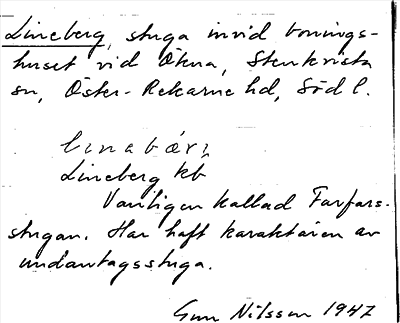 Lineberg, stuga invid bonings-
huset vid Ökna, Stenkvista
sn, Öster-Rekarne hd, Södl.
linabärj
Lineberg kb
Vanligen kallad Farfars-
stugan. Har haft karaktären av
undantagsstuga.
Gun Nilsson 1947